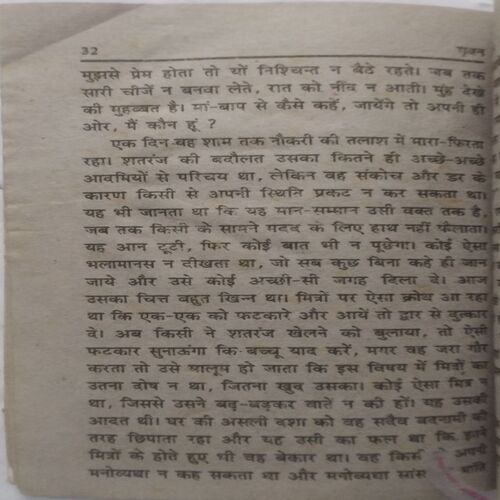 32 गबन
मुझसे प्रेम होता तो यों निश्चिन्त न बैठे रहते। जब तक
सारी चीजें न बनवा लेते, रात को नींद न आती। मुंह देखे
की मुहब्बत है। मां-बाप से कैसे कहें, जायेंगे तो अपनी ही
ओर, मैं कौन हूं ?
एक दिन वह शाम तक नौकरी की तलाश में मारा-फिरता
रहा। शतरंज की बदौलत उसका कितने ही अच्छे-अच्छे
आदमियों से परिचय था, लेकिन वह संकोच और डर के
कारण किसी से अपनी स्थिति प्रकट न कर सकता था।
यह भी जानता था कि यह मान-सम्मान उसी वक्त तक है,
जब तक किसी के सामने मदद के लिए हाथ नहीं फैलाता।
यह आन टूटी, फिर कोई बात भी न पूछेगा। कोई ऐसा
भलामानस न दीखता था, जो सब कुछ बिना कहे ही जान
जाये और उसे कोई अच्छी-सी जगह दिला दे। आज
उसका चित्त बहुत खिन्न था। मित्रों पर ऐसा क्रोध आ रहा
था कि एक-एक को फटकारे और आयें तो द्वार से दुत्कार
दे। अब किसी ने शतरंज खेलने को बुलाया, तो ऐसी
फटकार सुनाऊंगा कि बच्चू याद करें, मगर वह जरा गौर
करता तो उसे मालूम हो जाता कि इस विषय में मित्रों का
उतना दोष न था, जितना खुद उसका। कोई ऐसा मित्र न
था, जिससे उसने बढ़-बढ़कर बातें न की हों। यह उसकी
आदत थी। घर की असली दशा को वह सदैव बदनामी की
तरह छिपाता रहा और यह उसी का फल था कि इतने
मित्रों के होते हुए भी वह बेकार था। वह किसी अपनी
मनोव्यथा न कह सकता था और मनोव्यथा सांस भांति